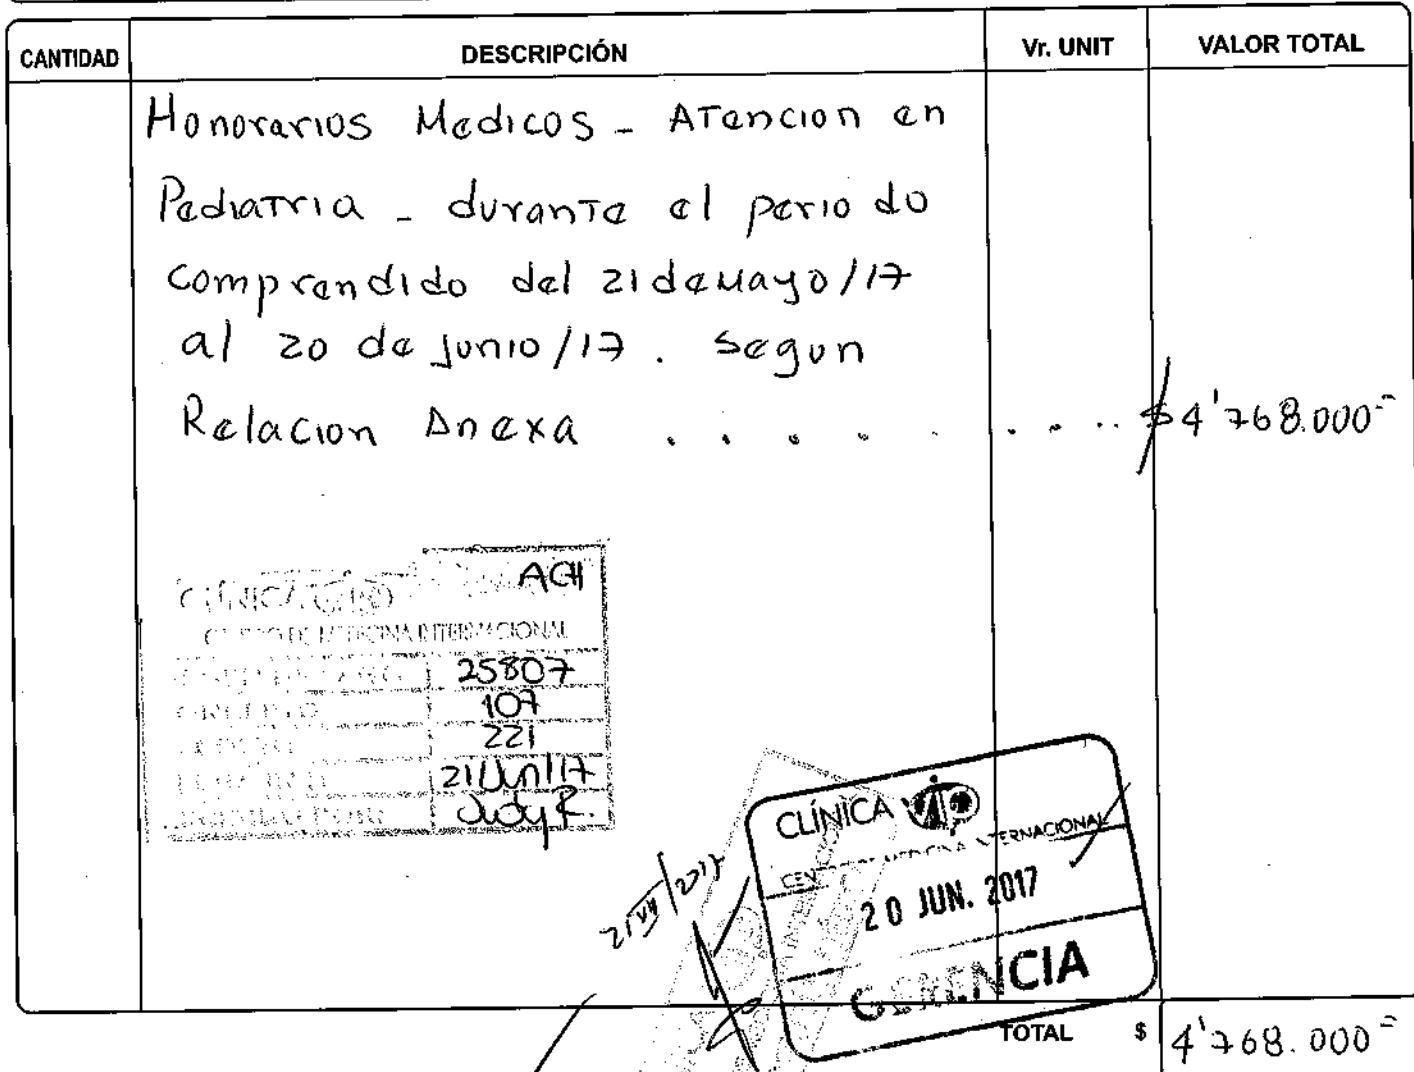 CANTIDAD DESCRIPCIÓN Vr. UNIT VALOR TOTAL
Honorarios Medicos - Atencion en
Pediatria - durante el periodo
comprendido del 21 de Mayo/17
al 20 de junio/17. Segun
Relacion Anexa . . . . . . . . $4'768.000=
ACH
CLÍNICA
CENTRO DE MEDICINA INTERNACIONAL
25807
107
221
21/Jun/17
Judy R.
CLÍNICA VIP
CENTRO DE MEDICINA INTERNACIONAL
20 JUN. 2017
GERENCIA
TOTAL $ 4'768.000=